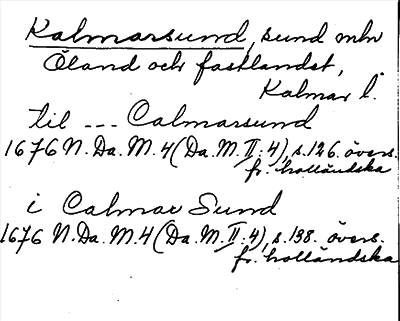 Kalmarsund, sund mln
Öland och fastlandet,
Kalmar l.
till --- Calmarsund
1676 N. Da. M. 4 (Da. M. II: 4), s. 126. övers.
fr. holländska
i Calmar Sund
1676 N. Da. M. 4 (Da. M. II: 4), s. 138. övers.
fr. holländska